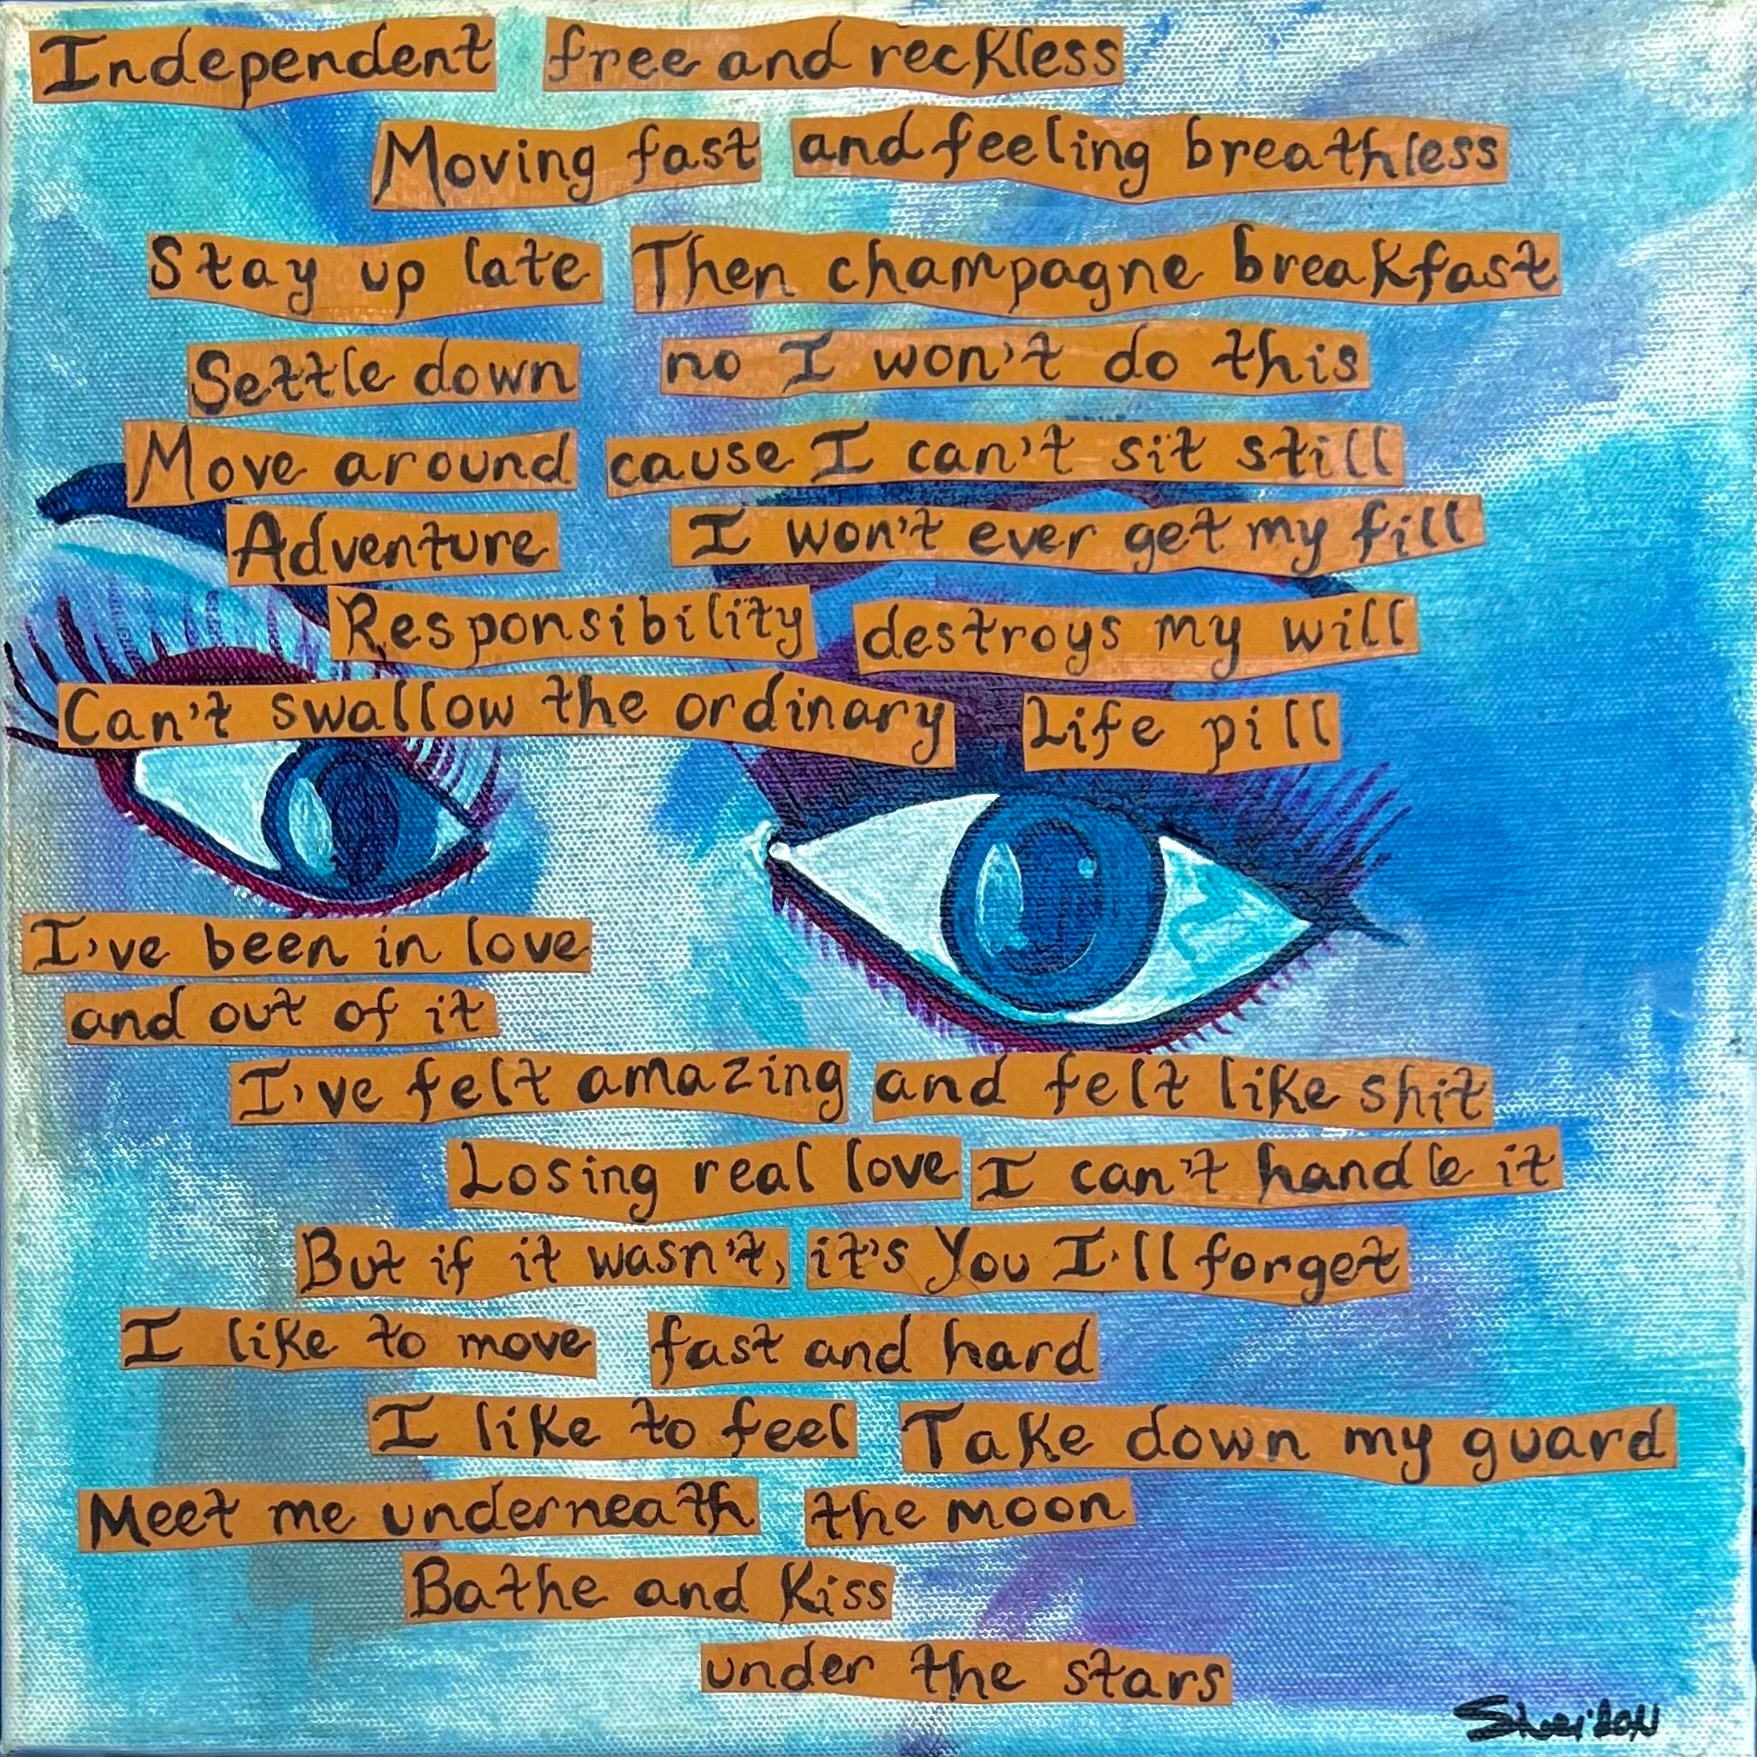 Independent free and reckless
Moving fast and feeling breathless
Stay up late Then champagne breakfast
Settle down no I won't do this
Move around cause I can't sit still
Adventure I won't ever get my fill
Responsibility destroys my will
Can't swallow the ordinary Life pill
I've been in love
and out of it
I've felt amazing and felt like shit
Losing real love I can't handle it
But if it wasn't, it's you I'll forget
I like to move fast and hard
I like to feel Take down my guard
Meet me underneath the moon
Bathe and kiss
under the stars